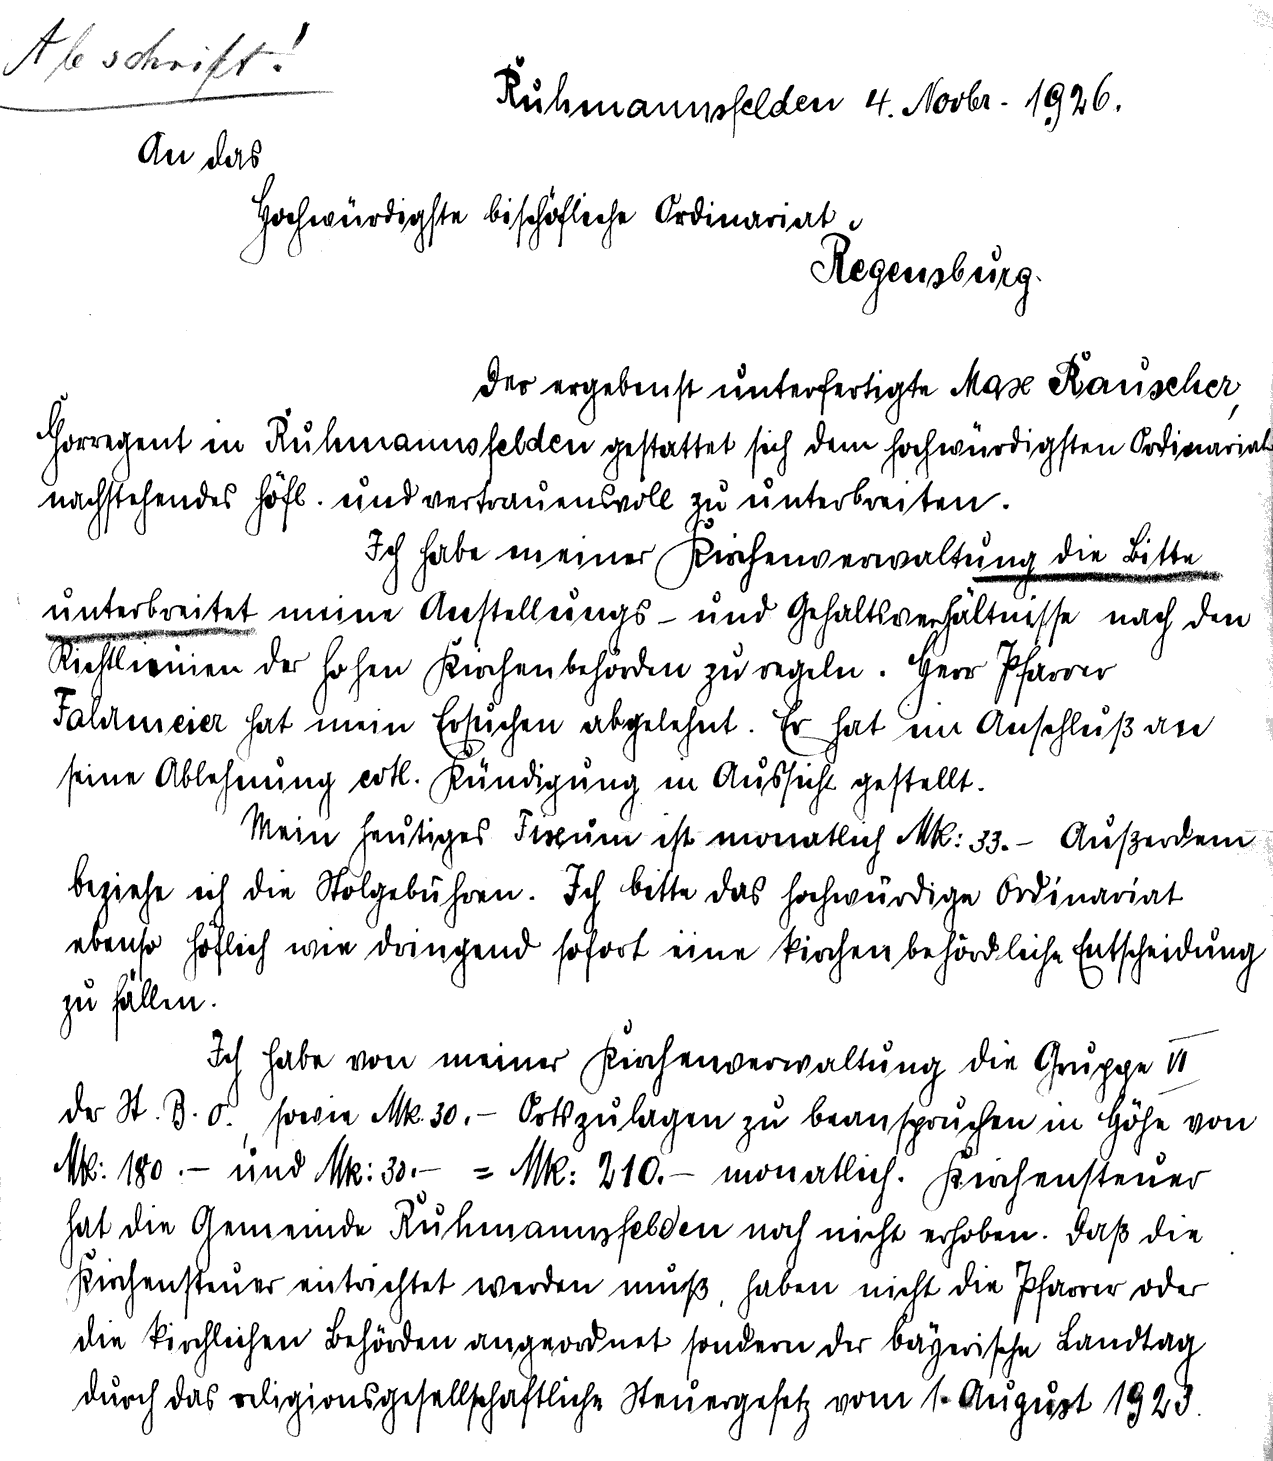 Abschrift!
Ruhmannsfelden 4. Novbr. 1926.
An das
Hochwürdigste bischöfliche Ordinariat
Regensburg.
Der ergebenst unterfertigte Max Rauscher,
Chorregent in Ruhmannsfelden gestattet sich dem hochwürdigsten Ordinariat
nachstehendes höfl. und vertrauensvoll zu unterbreiten.
Ich habe meiner Kirchenverwaltung die Bitte
unterbreitet meine Anstellungs- und Gehaltsverhältnisse nach den
Richtlinien der hohen Kirchenbehörden zu regeln. Herr Pfarrer
Fahrmeier hat mein Ersuchen abgelehnt. Er hat im Anschluß an
seine Ablehnung evtl. Kündigung in Aussicht gestellt.
Mein heutiges Fixum ist monatlich Mk: 33.- Außerdem
beziehe ich die Stolgebühren. Ich bitte das hochwürdige Ordinariat
ebenso höflich wie dringend sofort eine kirchenbehördliche Entscheidung
zu fällen.
Ich habe von meiner Kirchenverwaltung die Gruppe VI
der St. B. O., sowie Mk. 30.- Ortszulagen zu beanspruchen in Höhe von
Mk: 180.- und Mk: 30.- = Mk: 210.- monatlich. Kirchensteuer
hat die Gemeinde Ruhmannsfelden noch nicht erhoben. Daß die
Kirchensteuer entrichtet werden muß, haben nicht die Pfarrer oder
die kirchlichen Behörden angeordnet sondern der bayerische Landtag
durch das religionsgesellschaftliche Steuergesetz vom 1. August 1923.